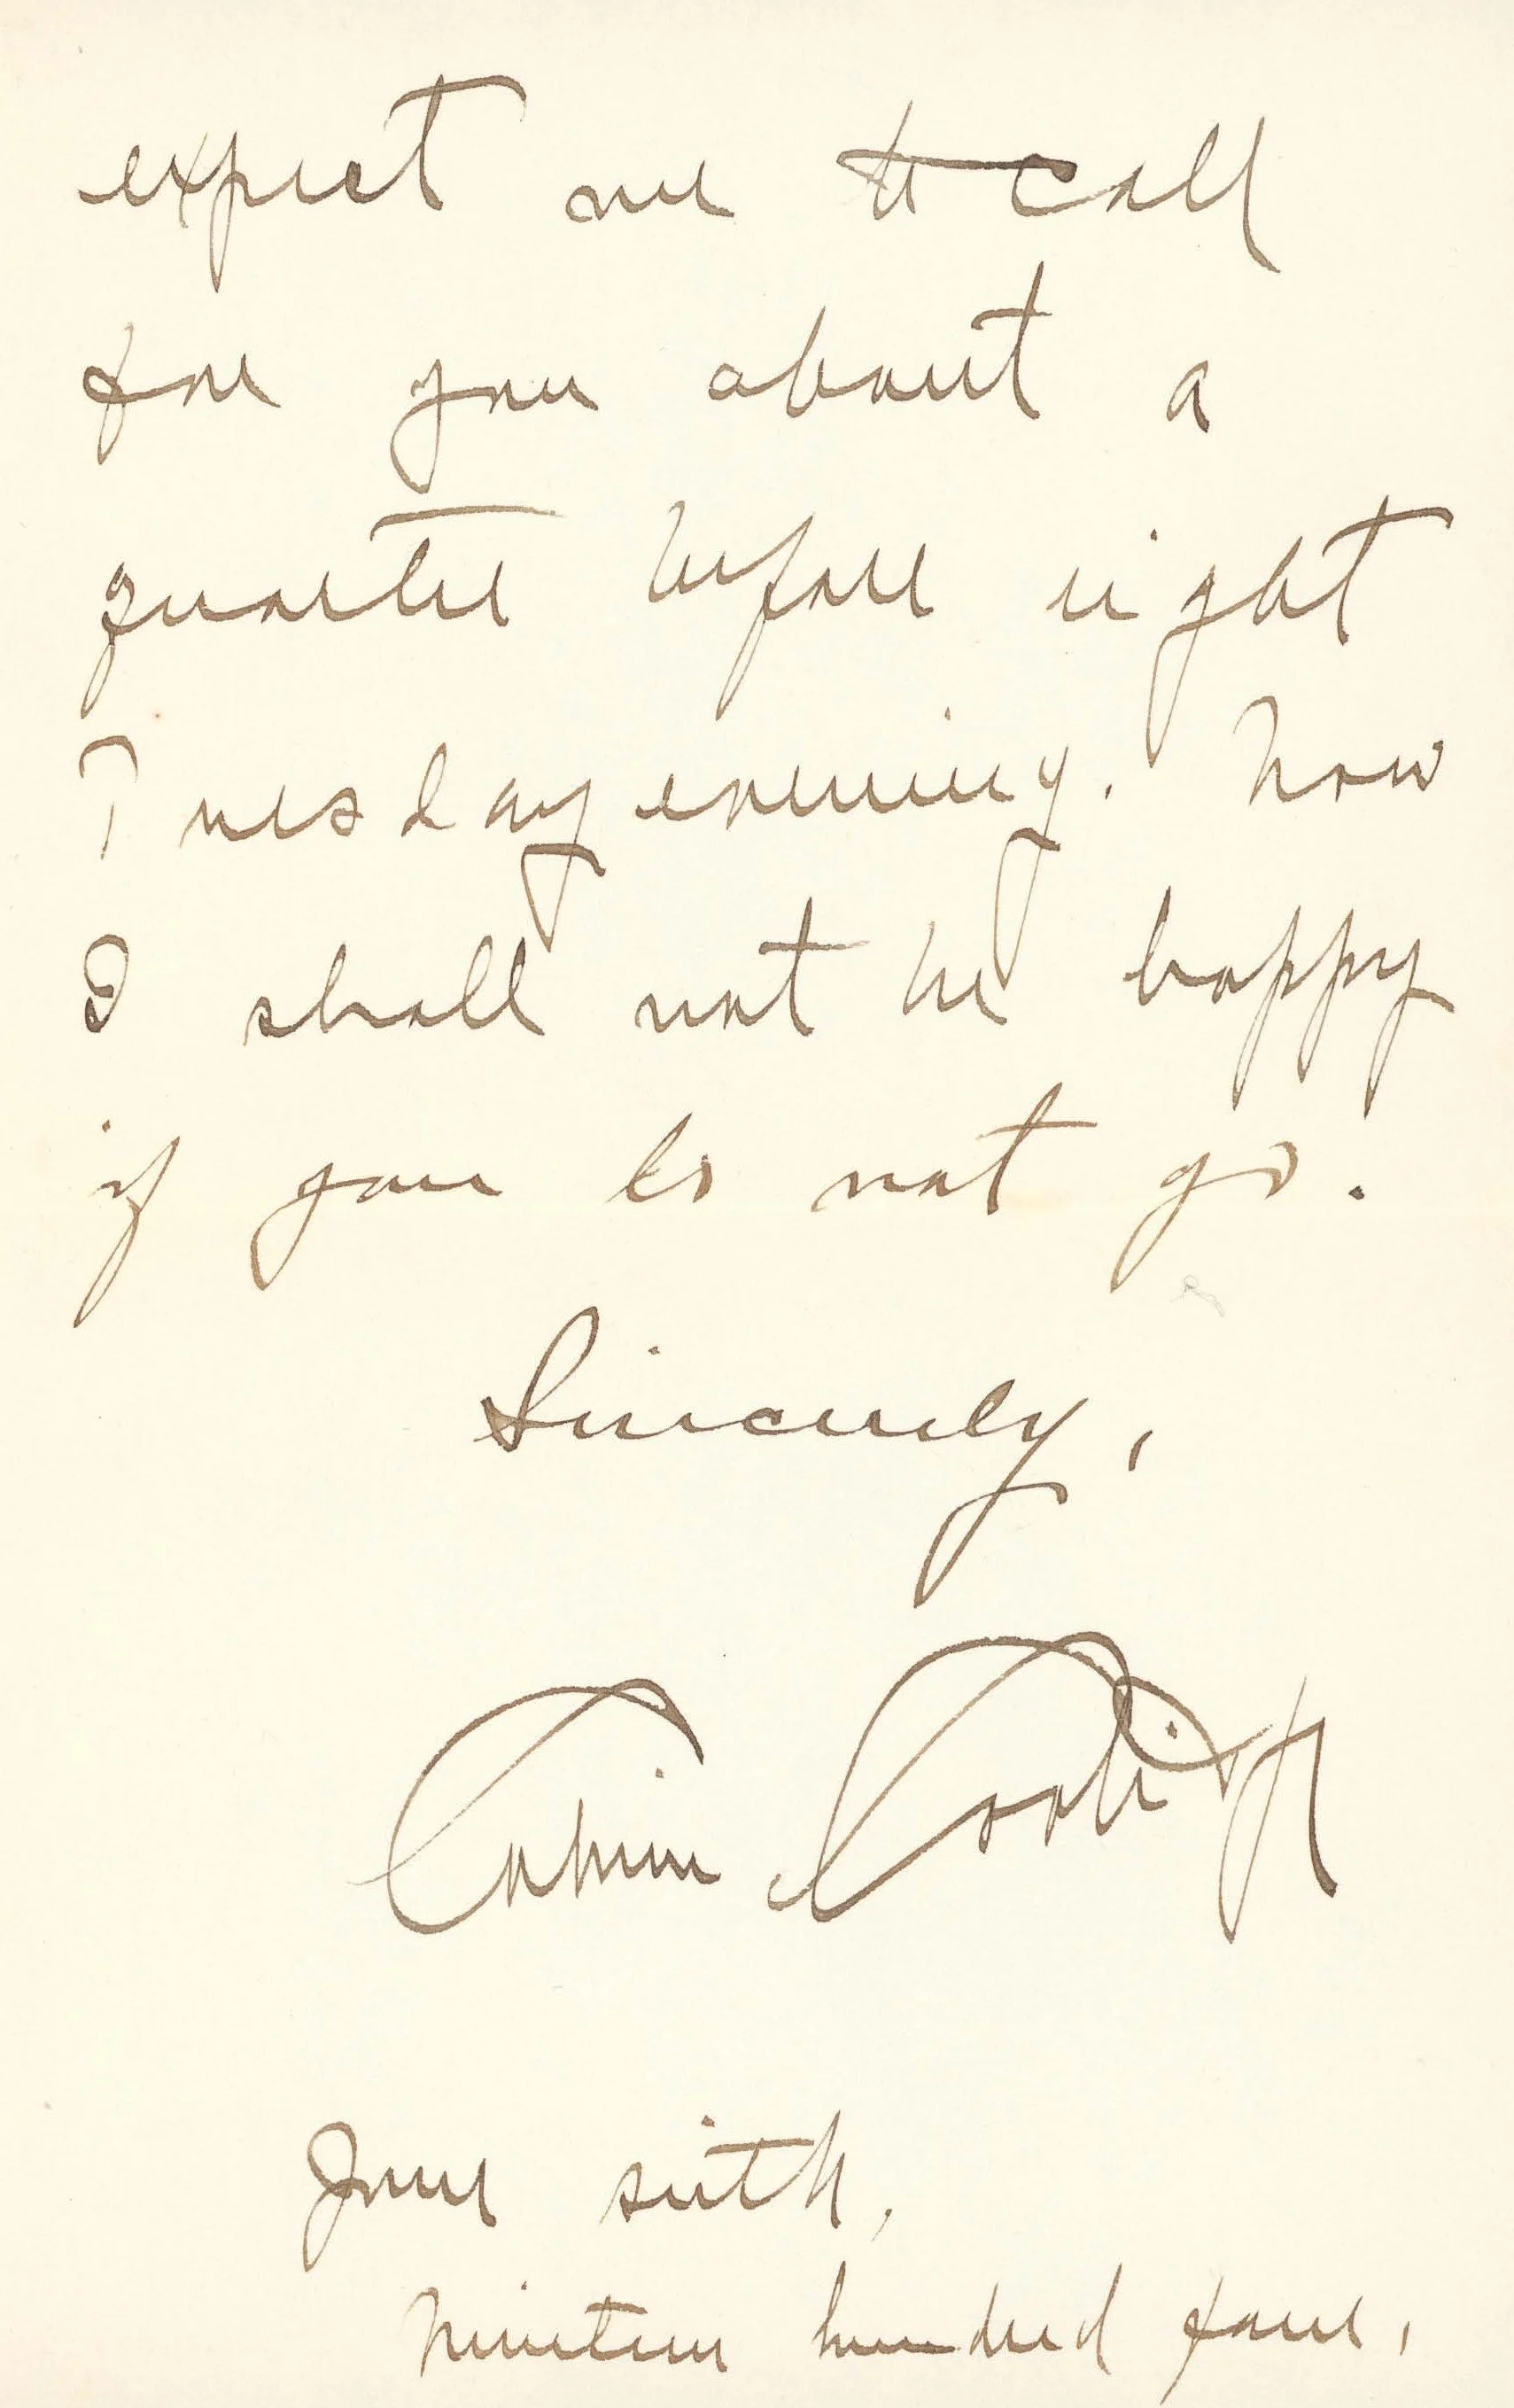 expect me to call
for you about a
quarter before eight
Tuesday evening. Now
I shall not be happy
if you do not go.
Sincerely,
Calvin Coolidge
June sixth,
Nineteen hundred four,